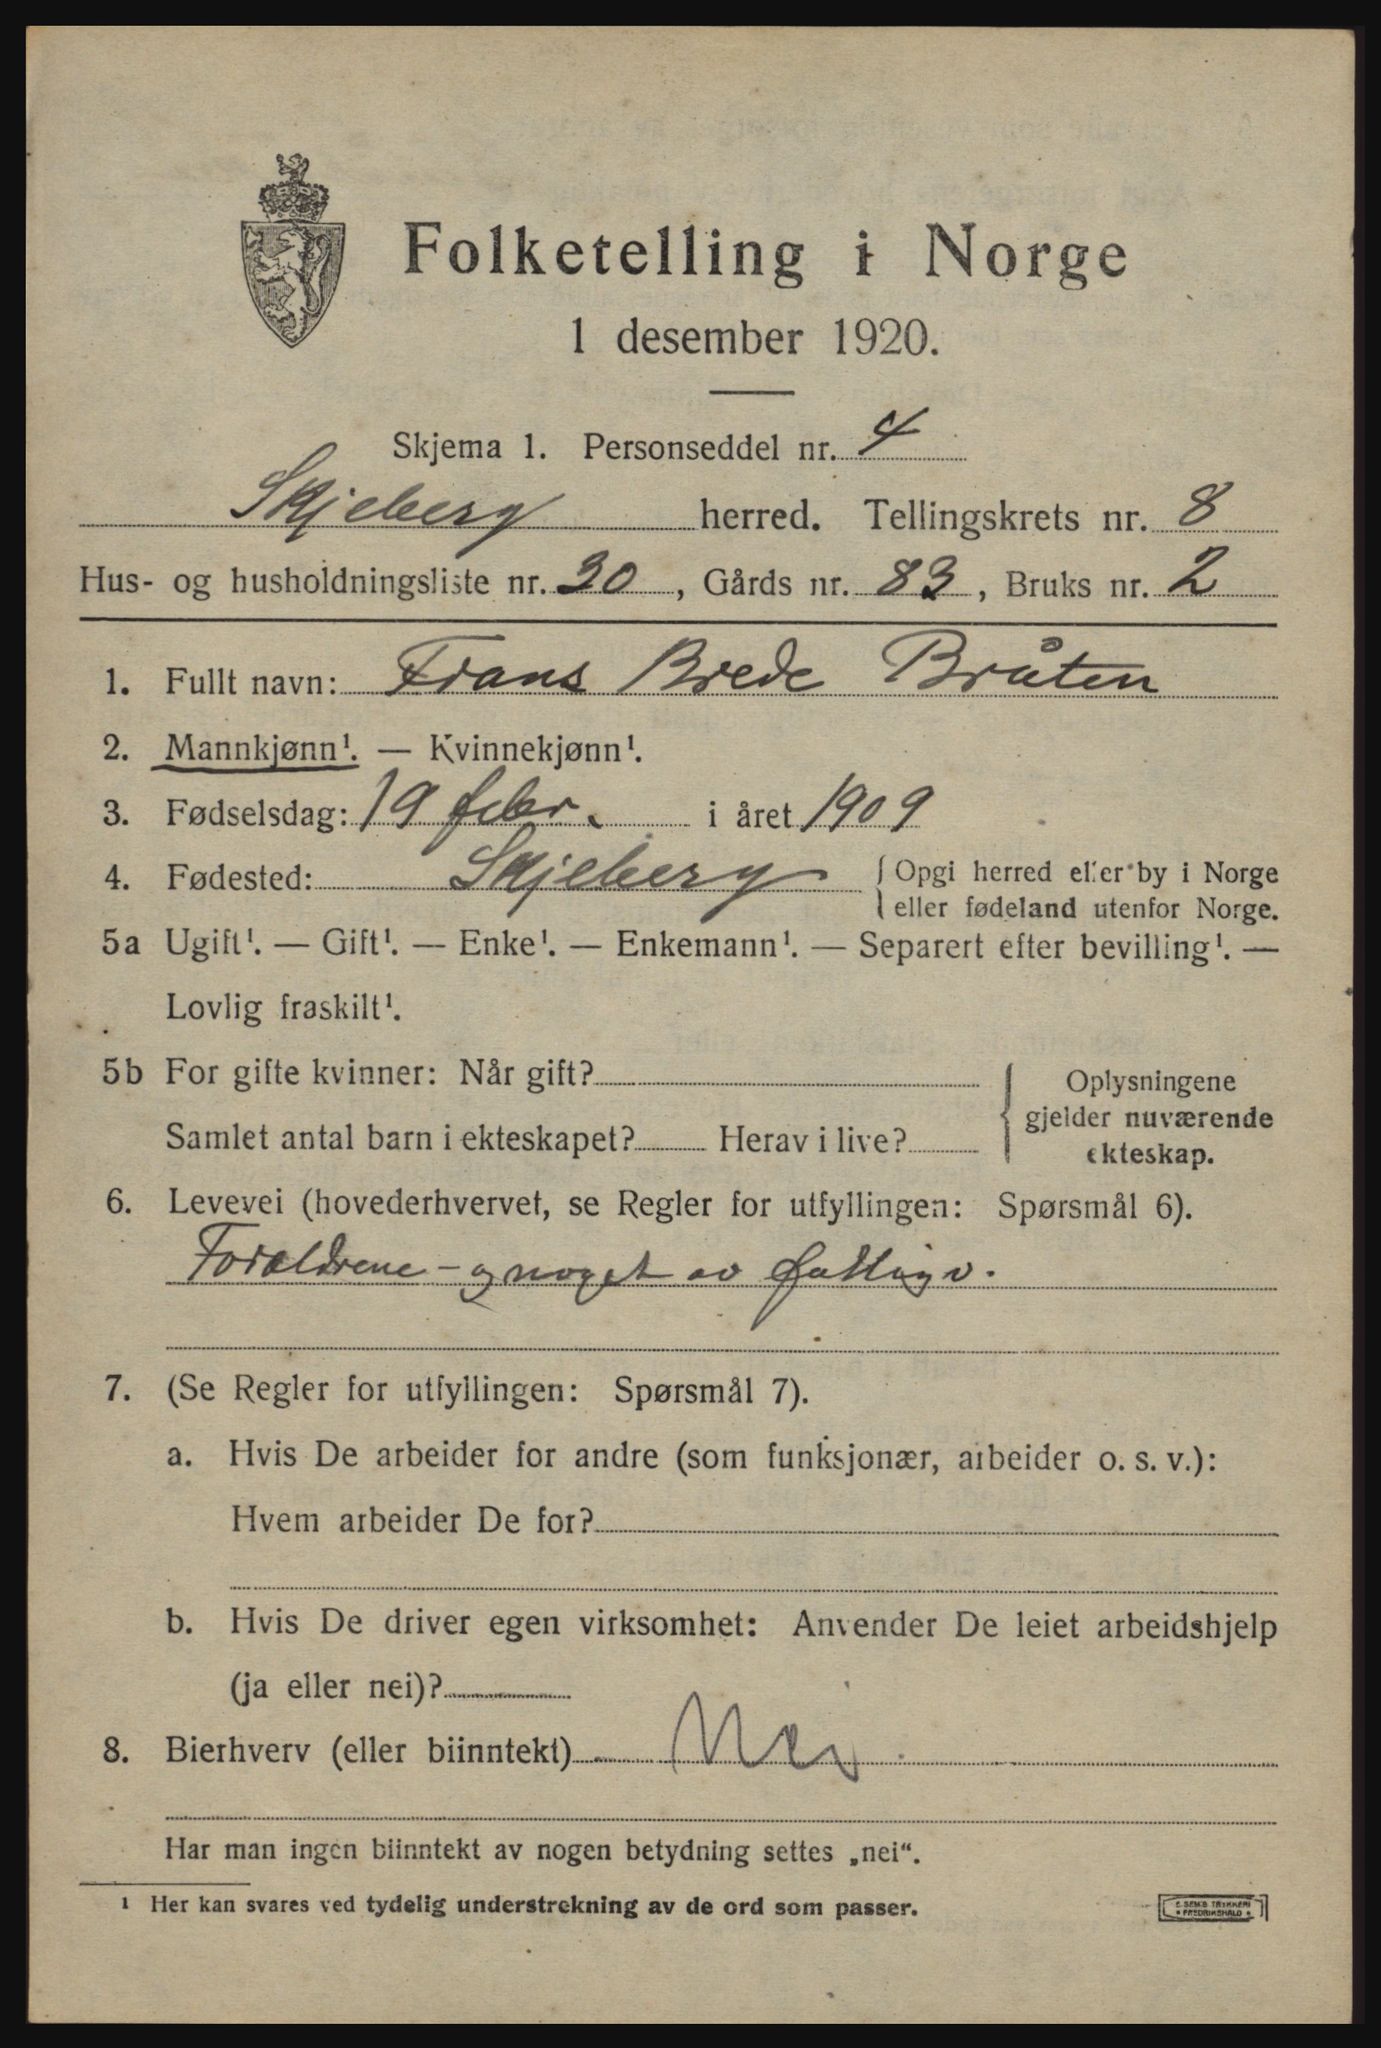 Folketelling i Norge
1 desember 1920.
Skjema 1. Personseddel nr. 4
Skjeberg herred. Tellingskrets nr. 8
Hus- og husholdningsliste nr. 30, Gårds nr. 83, Bruks nr. 2
1. Fullt navn: Frans Brede Bråten
2. Mannkjønn¹. — Kvinnekjønn¹.
3. Fødselsdag: 19 febr. i året 1909
4. Fødested: Skjeberg { Opgi herred eller by i Norge
eller fødeland utenfor Norge.
5a Ugift¹. — Gift¹. — Enke¹. — Enkemann¹. — Separert efter bevilling¹. —
Lovlig fraskilt¹.
5b For gifte kvinner: Når gift? { Oplysningene
gjelder nuværende
Samlet antal barn i ekteskapet? Herav i live?
ekteskap.
6. Levevei (hovederhvervet, se Regler for utfyllingen: Spørsmål 6).
Forældrene - og noget av fattigv.
7. (Se Regler for utfyllingen: Spørsmål 7).
a. Hvis De arbeider for andre (som funksjonær, arbeider o. s. v.):
Hvem arbeider De for?
b. Hvis De driver egen virksomhet: Anvender De leiet arbeidshjelp
(ja eller nei)?
8. Bierhverv (eller biinntekt) Nei.
Har man ingen biinntekt av nogen betydning settes „nei“.
¹ Her kan svares ved tydelig understrekning av de ord som passer.
TRYKKERI
FREDRIKSHALD